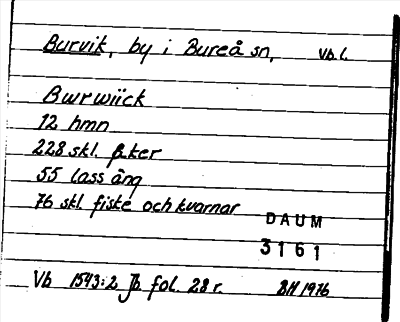 Burvik, by i Bureå sn, Vb l.
Bwrwiick
12 hmn
228 skl. åker
55 lass äng
76 skl. fiske och kvarnar
DAUM
3161
Vb 1543:2 Jb fol. 28 r. BH 1976